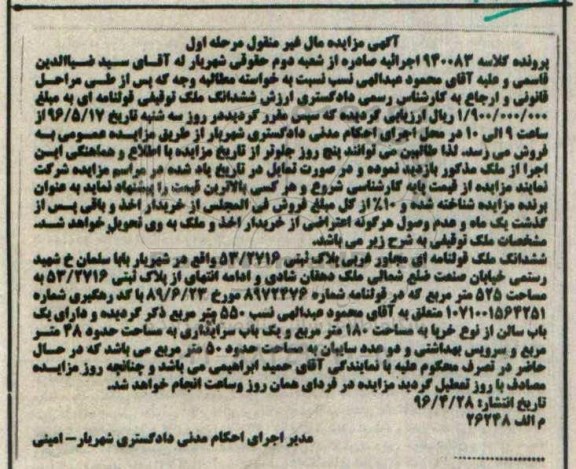 آگهی مزایده مال غیر منقول مرحله اول
پرونده کلاسه ۹۴۰۰۸۳ اجرائیه صادره از شعبه دوم حقوقی شهریار له آقای سید ضیاالدین
قاسمی و علیه آقای محمود عبدالهی نسب نسبت به خواسته مطالبه وجه که پس از طی مراحل
قانونی و ارجاع به کارشناس رسمی دادگستری ارزش ششدانگ ملک توقیفی قولنامه ای به مبلغ
۱/۹۰۰/۰۰۰/۰۰۰ ریال ارزیابی گردیده که سپس مقرر گردیددر روز سه شنبه تاریخ ۹۶/۵/۱۷ از
ساعت ۹ الی ۱۰ در محل اجرای احکام مدنی دادگستری شهریار از طریق مزایده عمومی به
فروش می رسد. لذا طالبین می توانند پنج روز جلوتر از تاریخ مزایده با اطلاع و هماهنگی این
اجرا از ملک مذکور بازدید نموده و در صورت تمایل در تاریخ یاد شده در مراسم مزایده شرکت
نمایند مزایده از قیمت پایه کارشناسی شروع و هر کسی بالاترین قیمت را پیشنهاد نماید به عنوان
برنده مزایده شناخته شده و ۱۰٪ از کل مبلغ فروش فی المجلس از خریدار اخذ و باقی پس از
گذشت یک ماه و عدم وصول هرگونه اعتراضی از خریدار اخذ و ملک به وی تحویل خواهد شد.
مشخصات ملک توقیفی به شرح زیر می باشد.
ششدانگ ملک قولنامه ای مجاور غربی پلاک ثبتی ۵۳/۲۷۱۶ واقع در شهریار بابا سلمان خ شهید
رستمی خیابان صنعت ضلع شمالی ملک دهقان شادی و ادامه انتهای از پلاک ثبتی ۵۳/۲۷۱۶ به
مساحت ۵۲۵ متر مربع که در قولنامه شماره ۸۹۷۲۴۷۶ مورخ ۸۹/۶/۲۳ با کد رهگیری شماره
۱۰۷۱۰۰۱۵۶۴۲۵۱ متعلق به آقای محمود عبدالهی نسب ۵۵۰ متر مربع ذکر گردیده و دارای یک
باب سالن از نوع خرپا به مساحت ۱۸۰ متر مربع و یک باب سرایداری به مساحت حدود ۴۸ متر
مربع و سرویس بهداشتی و دو عدد سایبان به مساحت حدود ۵۰ متر مربع می باشد که در حال
حاضر در تصرف محکوم علیه با نمایندگی آقای حمید ابراهیمی می باشد و چنانچه روز مزایده
مصادف با روز تعطیل گردید مزایده در فردای همان روز وساعت انجام خواهد شد.
تاریخ انتشار: ۹۶/۴/۲۸
م الف ۲۶۲۴۸
مدیر اجرای احکام مدنی دادگستری شهریار- امینی